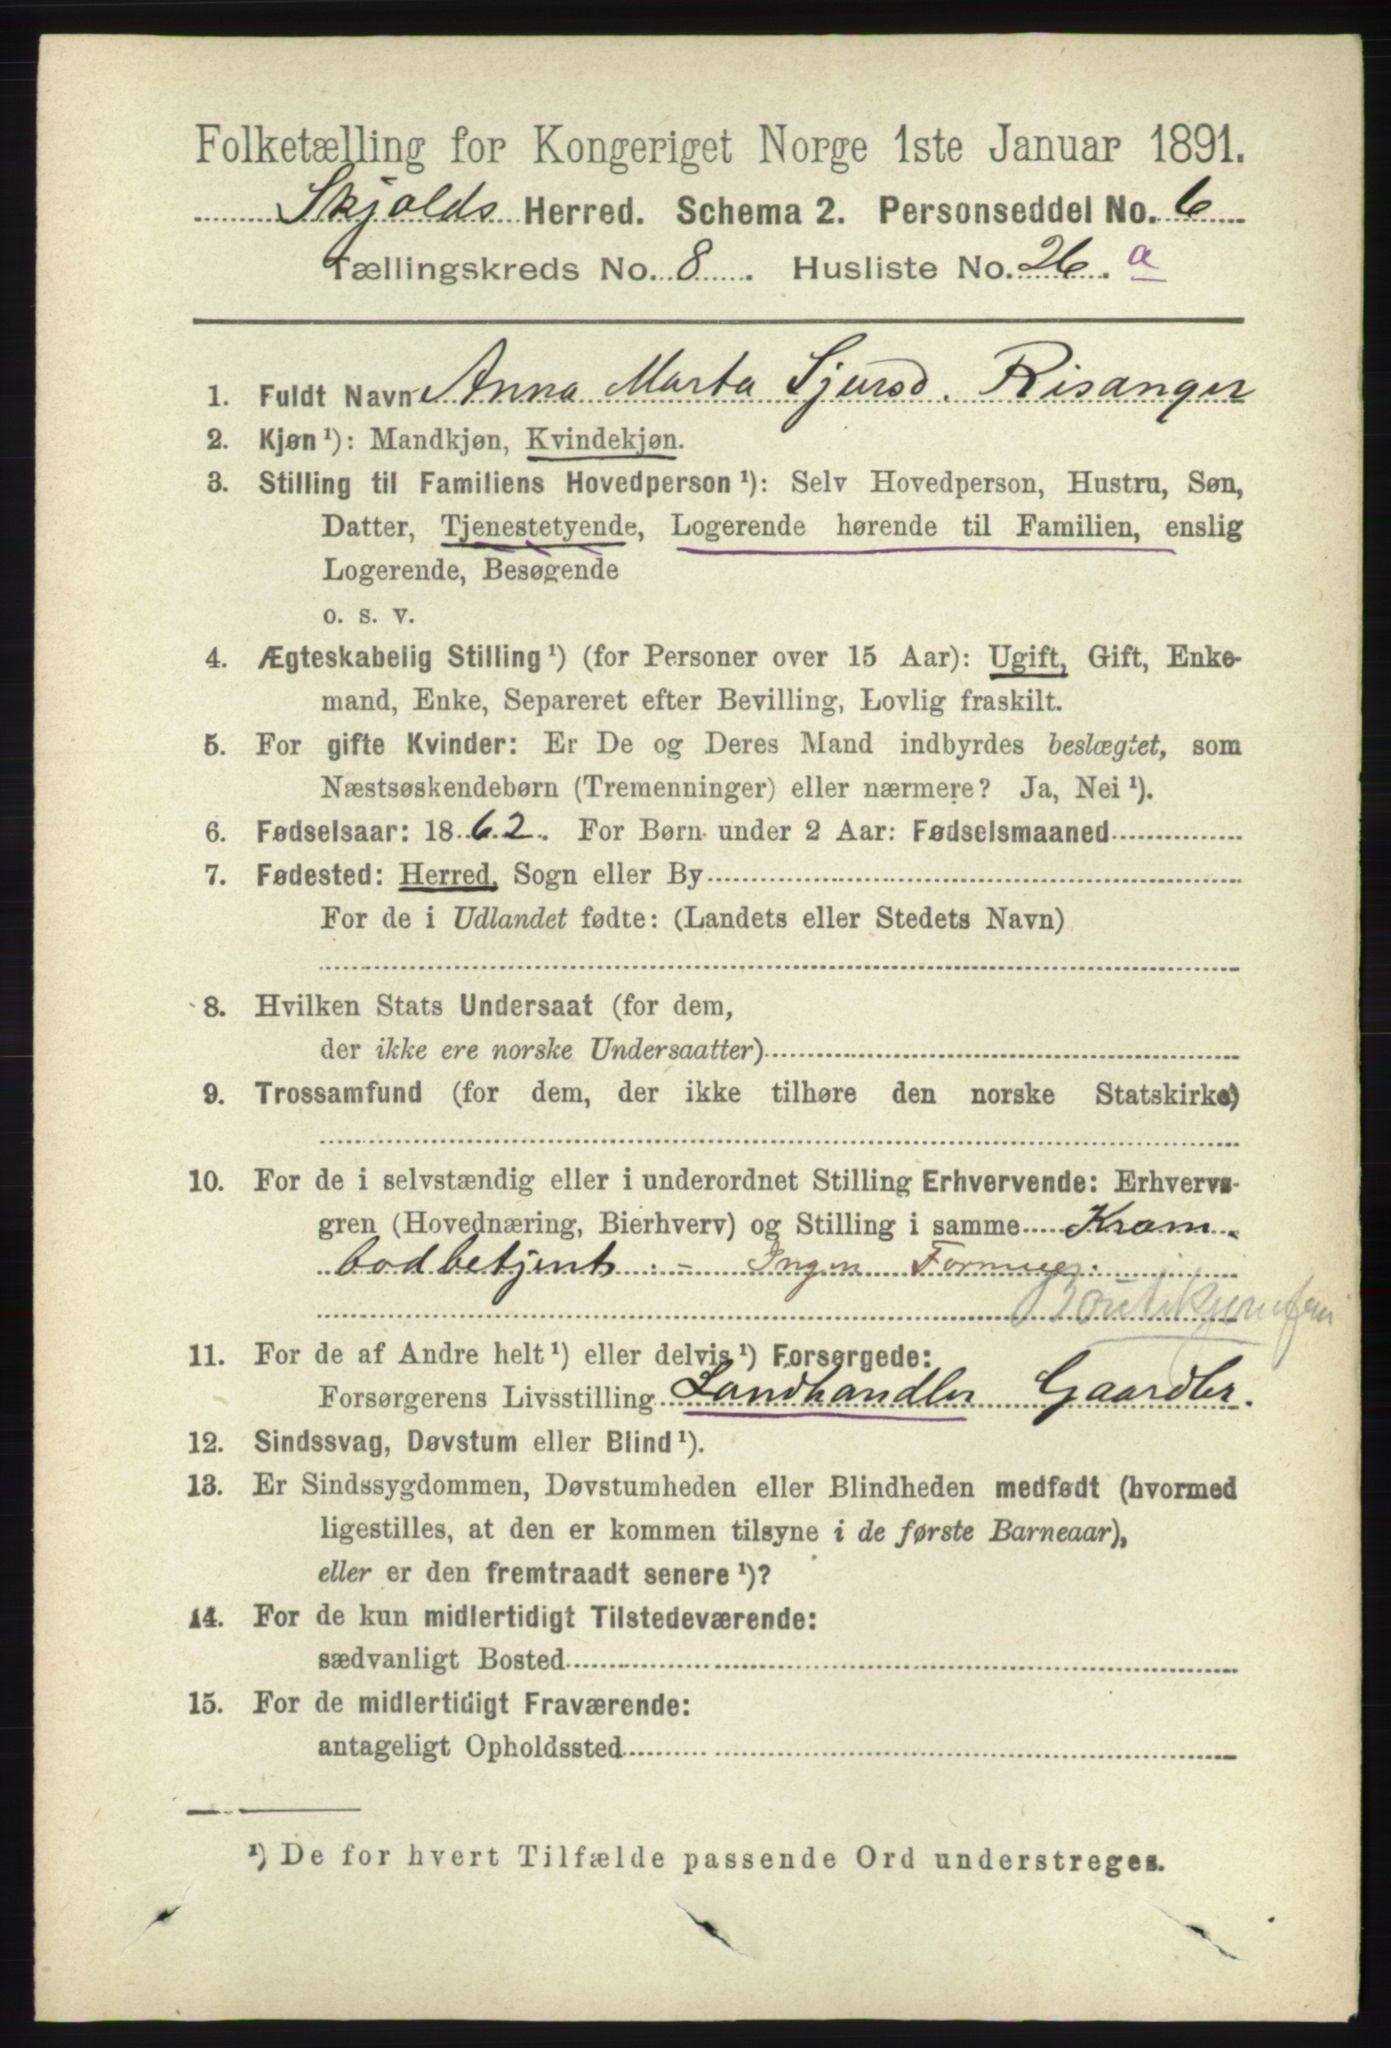 Folketælling for Kongeriget Norge 1ste Januar 1891.
Skjolds Herred. Schema 2. Personseddel No. 6
Tællingskreds No. 8. Husliste No. 26. a
1. Fuldt Navn Anna Marta Sjursd. Risanger
2. Kjøn ¹): Mandkjøn, Kvindekjøn.
3. Stilling til Familiens Hovedperson ¹): Selv Hovedperson, Hustru, Søn,
Datter, Tjenestetyende, Logerende hørende til Familien, enslig
Logerende, Besøgende
o. s. v.
4. Ægteskabelig Stilling ¹) (for Personer over 15 Aar): Ugift, Gift, Enke-
mand, Enke, Separeret efter Bevilling, Lovlig fraskilt.
5. For gifte Kvinder: Er De og Deres Mand indbyrdes beslægtet, som
Næstsøskendebørn (Tremenninger) eller nærmere? Ja, Nei ¹).
6. Fødselsaar: 1862. For Børn under 2 Aar: Fødselsmaaned
7. Fødested: Herred, Sogn eller By
For de i Udlandet fødte: (Landets eller Stedets Navn)
8. Hvilken Stats Undersaat (for dem,
der ikke ere norske Undersaatter)
9. Trossamfund (for dem, der ikke tilhøre den norske Statskirke)
10. For de i selvstændig eller i underordnet Stilling Erhvervende: Erhvervs-
gren (Hovednæring, Bierhverv) og Stilling i samme Kram-
bodbetjent. - Ingen Formue.
11. For de af Andre helt ¹) eller delvis ¹) Forsørgede:
Forsørgerens Livsstilling Landhandler Gaardbr.
12. Sindssvag, Døvstum eller Blind ¹).
13. Er Sindssygdommen, Døvstumheden eller Blindheden medfødt (hvormed
ligestilles, at den er kommen tilsyne i de første Barneaar),
eller er den fremtraadt senere ¹)?
14. For de kun midlertidigt Tilstedeværende:
sædvanligt Bosted
15. For de midlertidigt Fraværende:
antageligt Opholdssted
¹) De for hvert Tilfælde passende Ord understreges.